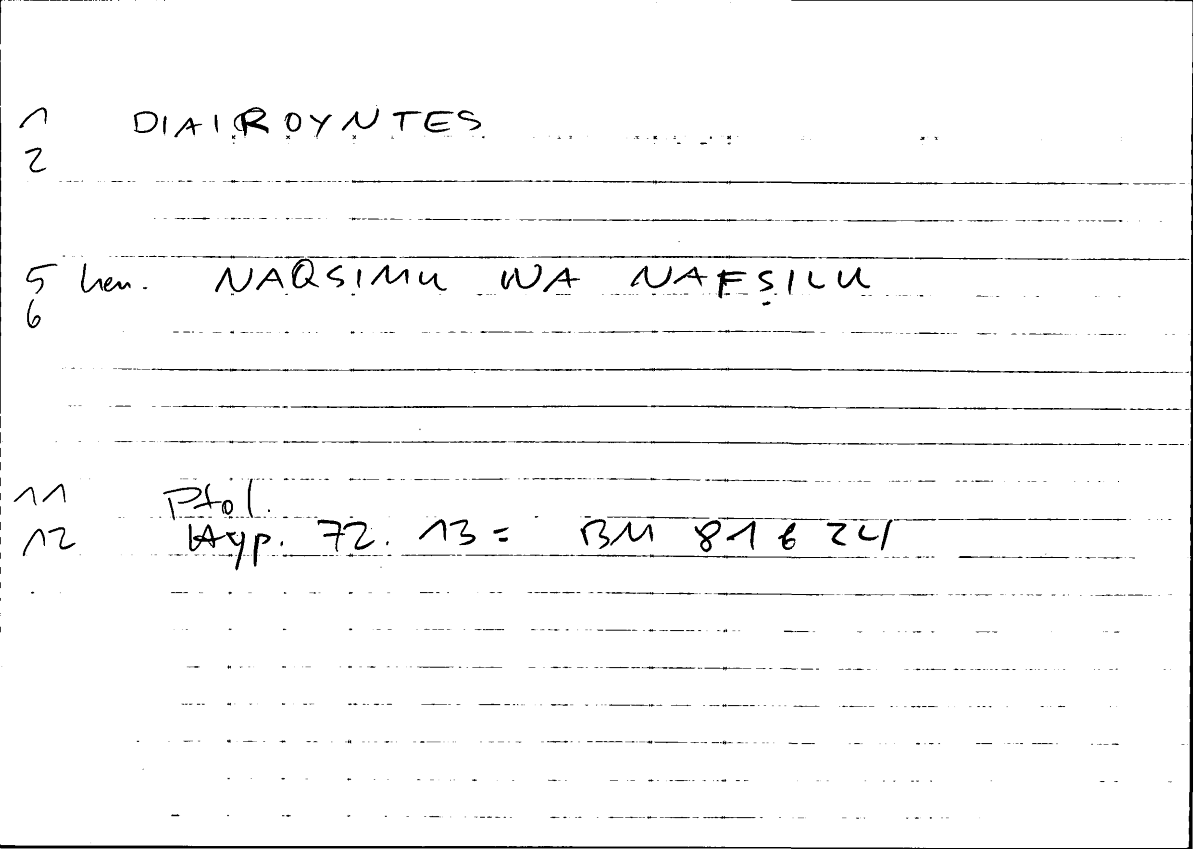 1 DIAIROYNTES
2
5 hen. NAQSIMU WA NAFṢILU
6
11 Ptol.
12 Hyp. 72. 13 = BM 81 6 24